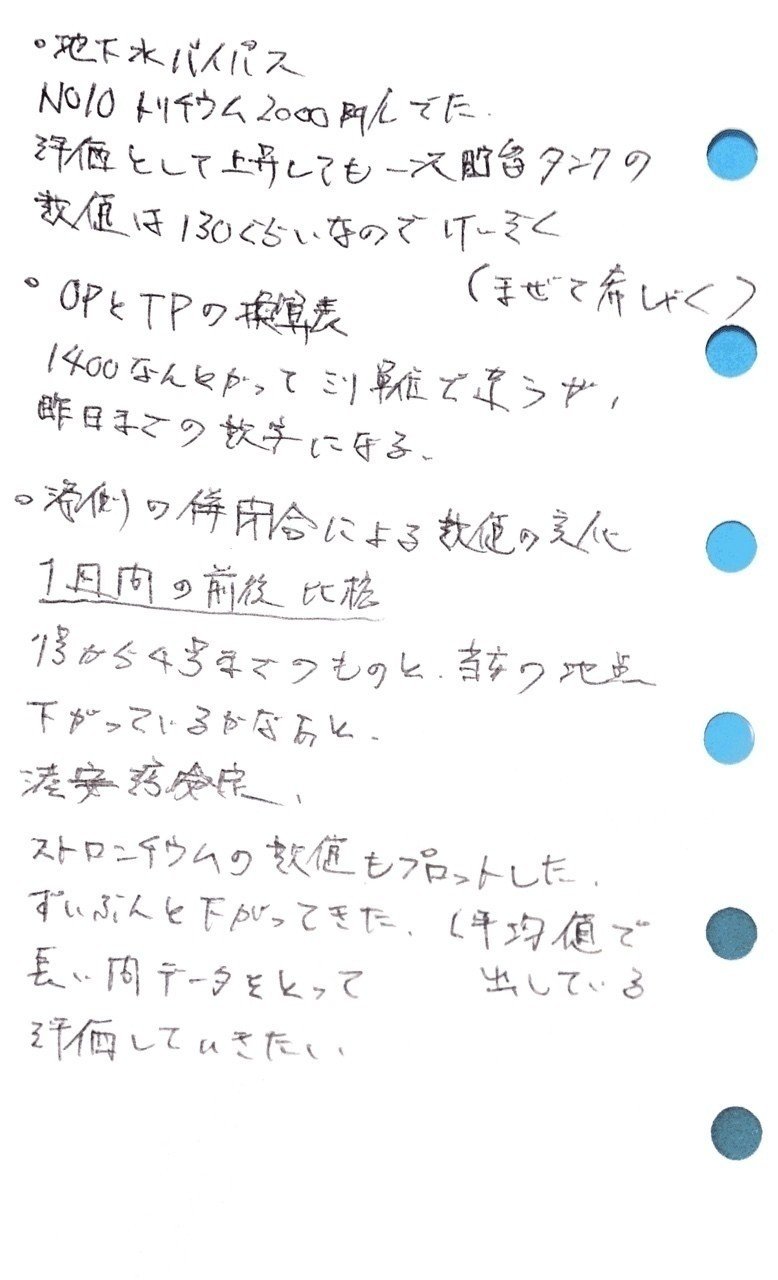 ・地下水バイパス
NO10 トリチウム2000 Bq/Lでた.
評価として上昇しても一次貯留タンクの
数値は130くらいなのでけーぞく
(まぜて希しゃく)
・OPとTPの換算表
1400なんとかってミリ単位で違うが,
昨日までの数字になる.
・海側の 閉合による数値の変化
1ヶ月間の前後 比較
1号から4号までのものと. の地点
下がっているかなあと.
ストロンチウムの数値もプロットした.
ずいぶんと下がってきた. (平均値で
出している
長い間データをとって
評価していきたい.